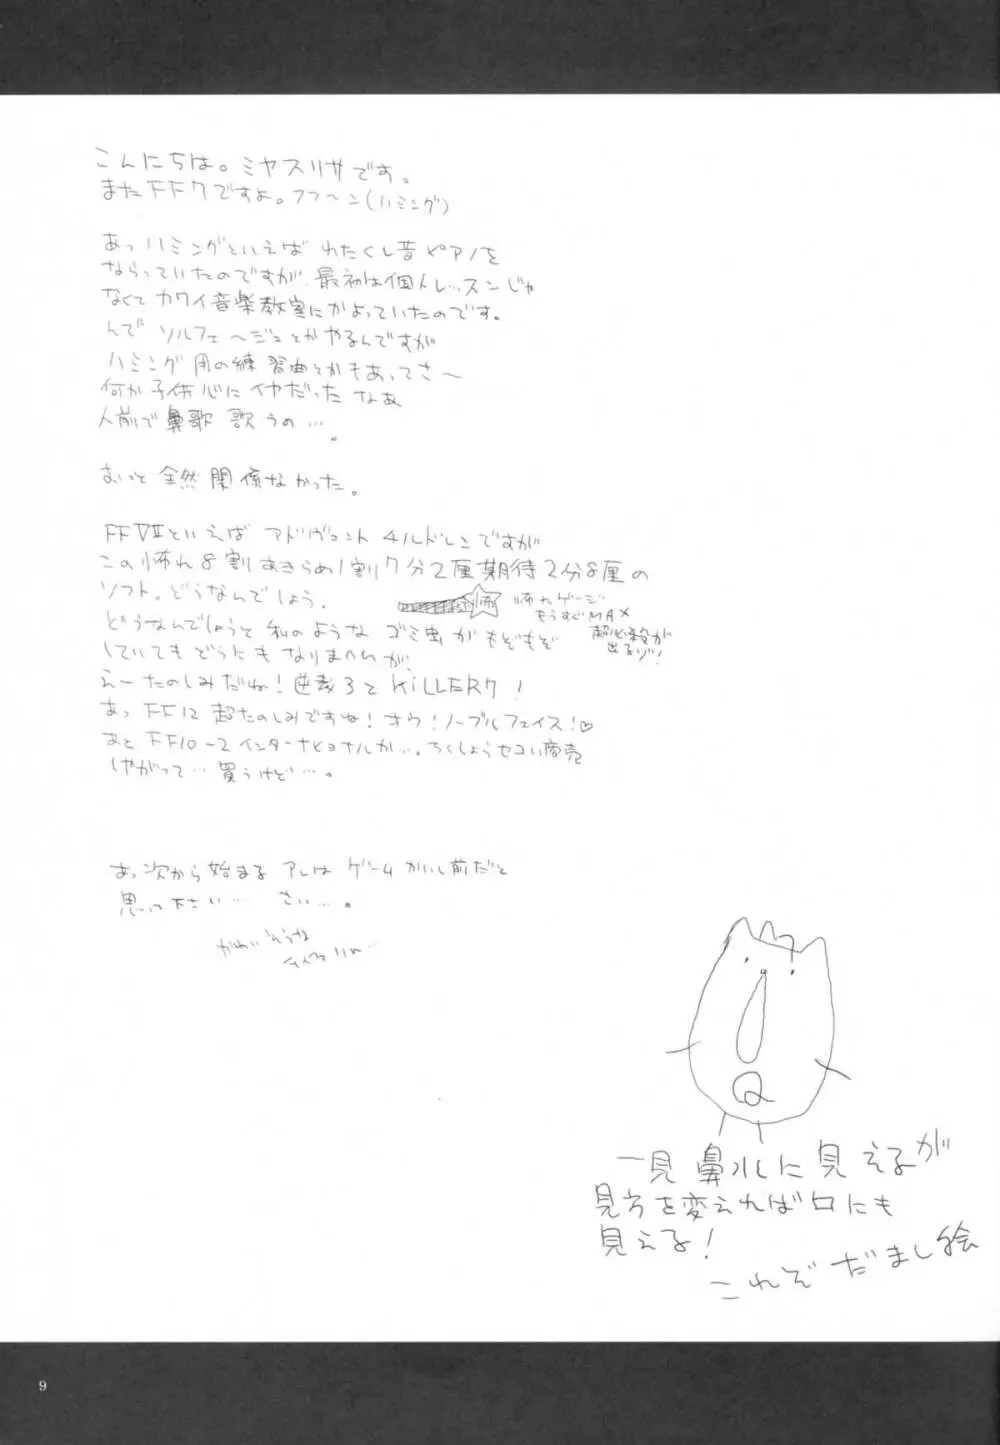 こんにちは。ミヤスリサです。
またFF7ですよ。フフ〜ン(ハミング)
あっハミングといえば わたくし昔ピアノを
ならっていたのですが、最初は個人レッスンじゃ
なくて カワイ音楽教室にかよっていたのです。
んで ソルフェ〜ジュとかやるんですが
ハミング用の練習曲とかもあってさ〜
何か子供心にイヤだったなあ
人前で鼻歌 歌うの…。
おっと 全然関係なかった。
FFⅦといえば アドヴェント チルドレンですが
この怖れ8割あきらめ1割7分2厘期待2分8厘の
ソフト。どうなんでしょう。
怖 怖れゲージ
もうすぐMAX
超必殺が
出るゾ!
どうなんでしょうと 私のような ゴミ虫が もぞもぞ
していても どうにも なりませんが、
えーたのしみだね!逆裁3とKiLLER7!
あっ FF12 超たのしみですね!オウ!ノーブルフェイス!♡
あと FF10-2インターナショナルか…。ちくしょうセコい商売
しやがって…買うけど…。
あっ次から始まる アレは ゲーム かいし前だと
思って下さい… さい…。
かわいそうな
一見鼻水に見えるが
見方を変えれば口にも
見える!
これぞ だまし絵
9